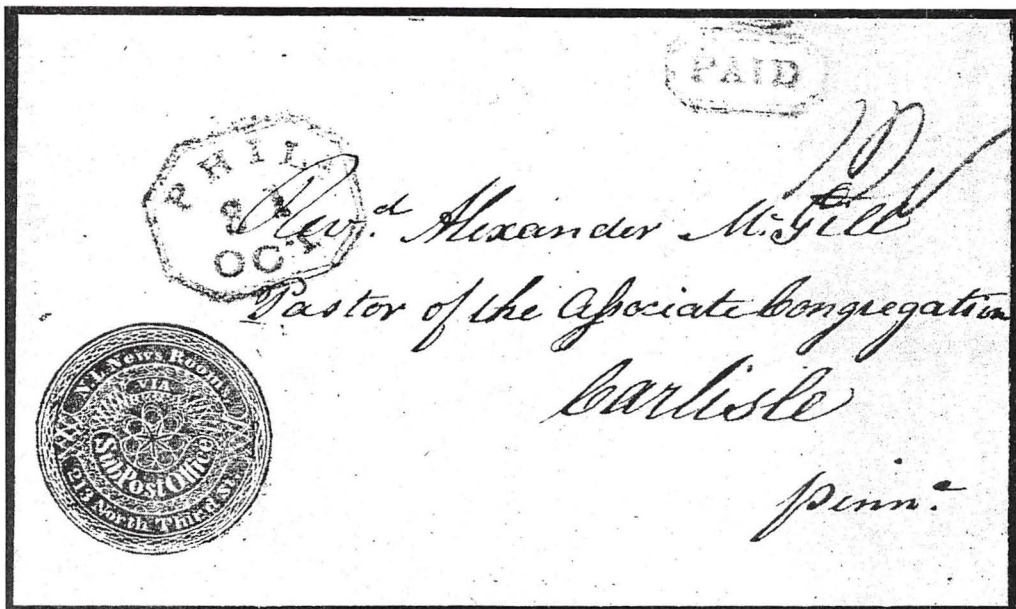 PAID
PHILA
OCT
10
Revd. Alexander McGill
Pastor of the Associate Congregation
Carlisle
Penna.
N.L. News Room
VIA
Sub Post Office
213 North Third St.